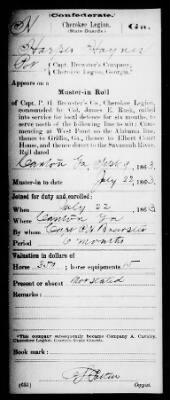 (Confederate.)
N Cherokee Legion Ga.
(State Guards.)
Harper Haynes
Pvt, Capt. Brewster's Company,
Cherokee Legion, Georgia.*
Appears on a
Muster-in Roll
of Capt. P. H. Brewster's Co., Cherokee Legion,
commanded by Col. James E. Rusk, called
into the service for local defense for six months, to
serve north of the following line to wit: Com-
mencing at West Point on the Alabama line,
thence to Griffin, Ga., thence to Elbert Court
House, and thence direct to the Savannah River.
Roll dated
Canton Ga, Sept 9, 1863.
Muster-in to date July 22, 1863
Joined for duty and enrolled:
When July 22, 1863
Where Canton Ga
By whom Capt P H Brewster
Period 6 months
Valuation in dollars of
Horse, 300; horse equipments, 15
Present or absent Not stated
Remarks:
*This company subsequently became Company A, Cavalry,
Cherokee Legion, Georgia State Guards.
Book mark:
(635) Copyist.